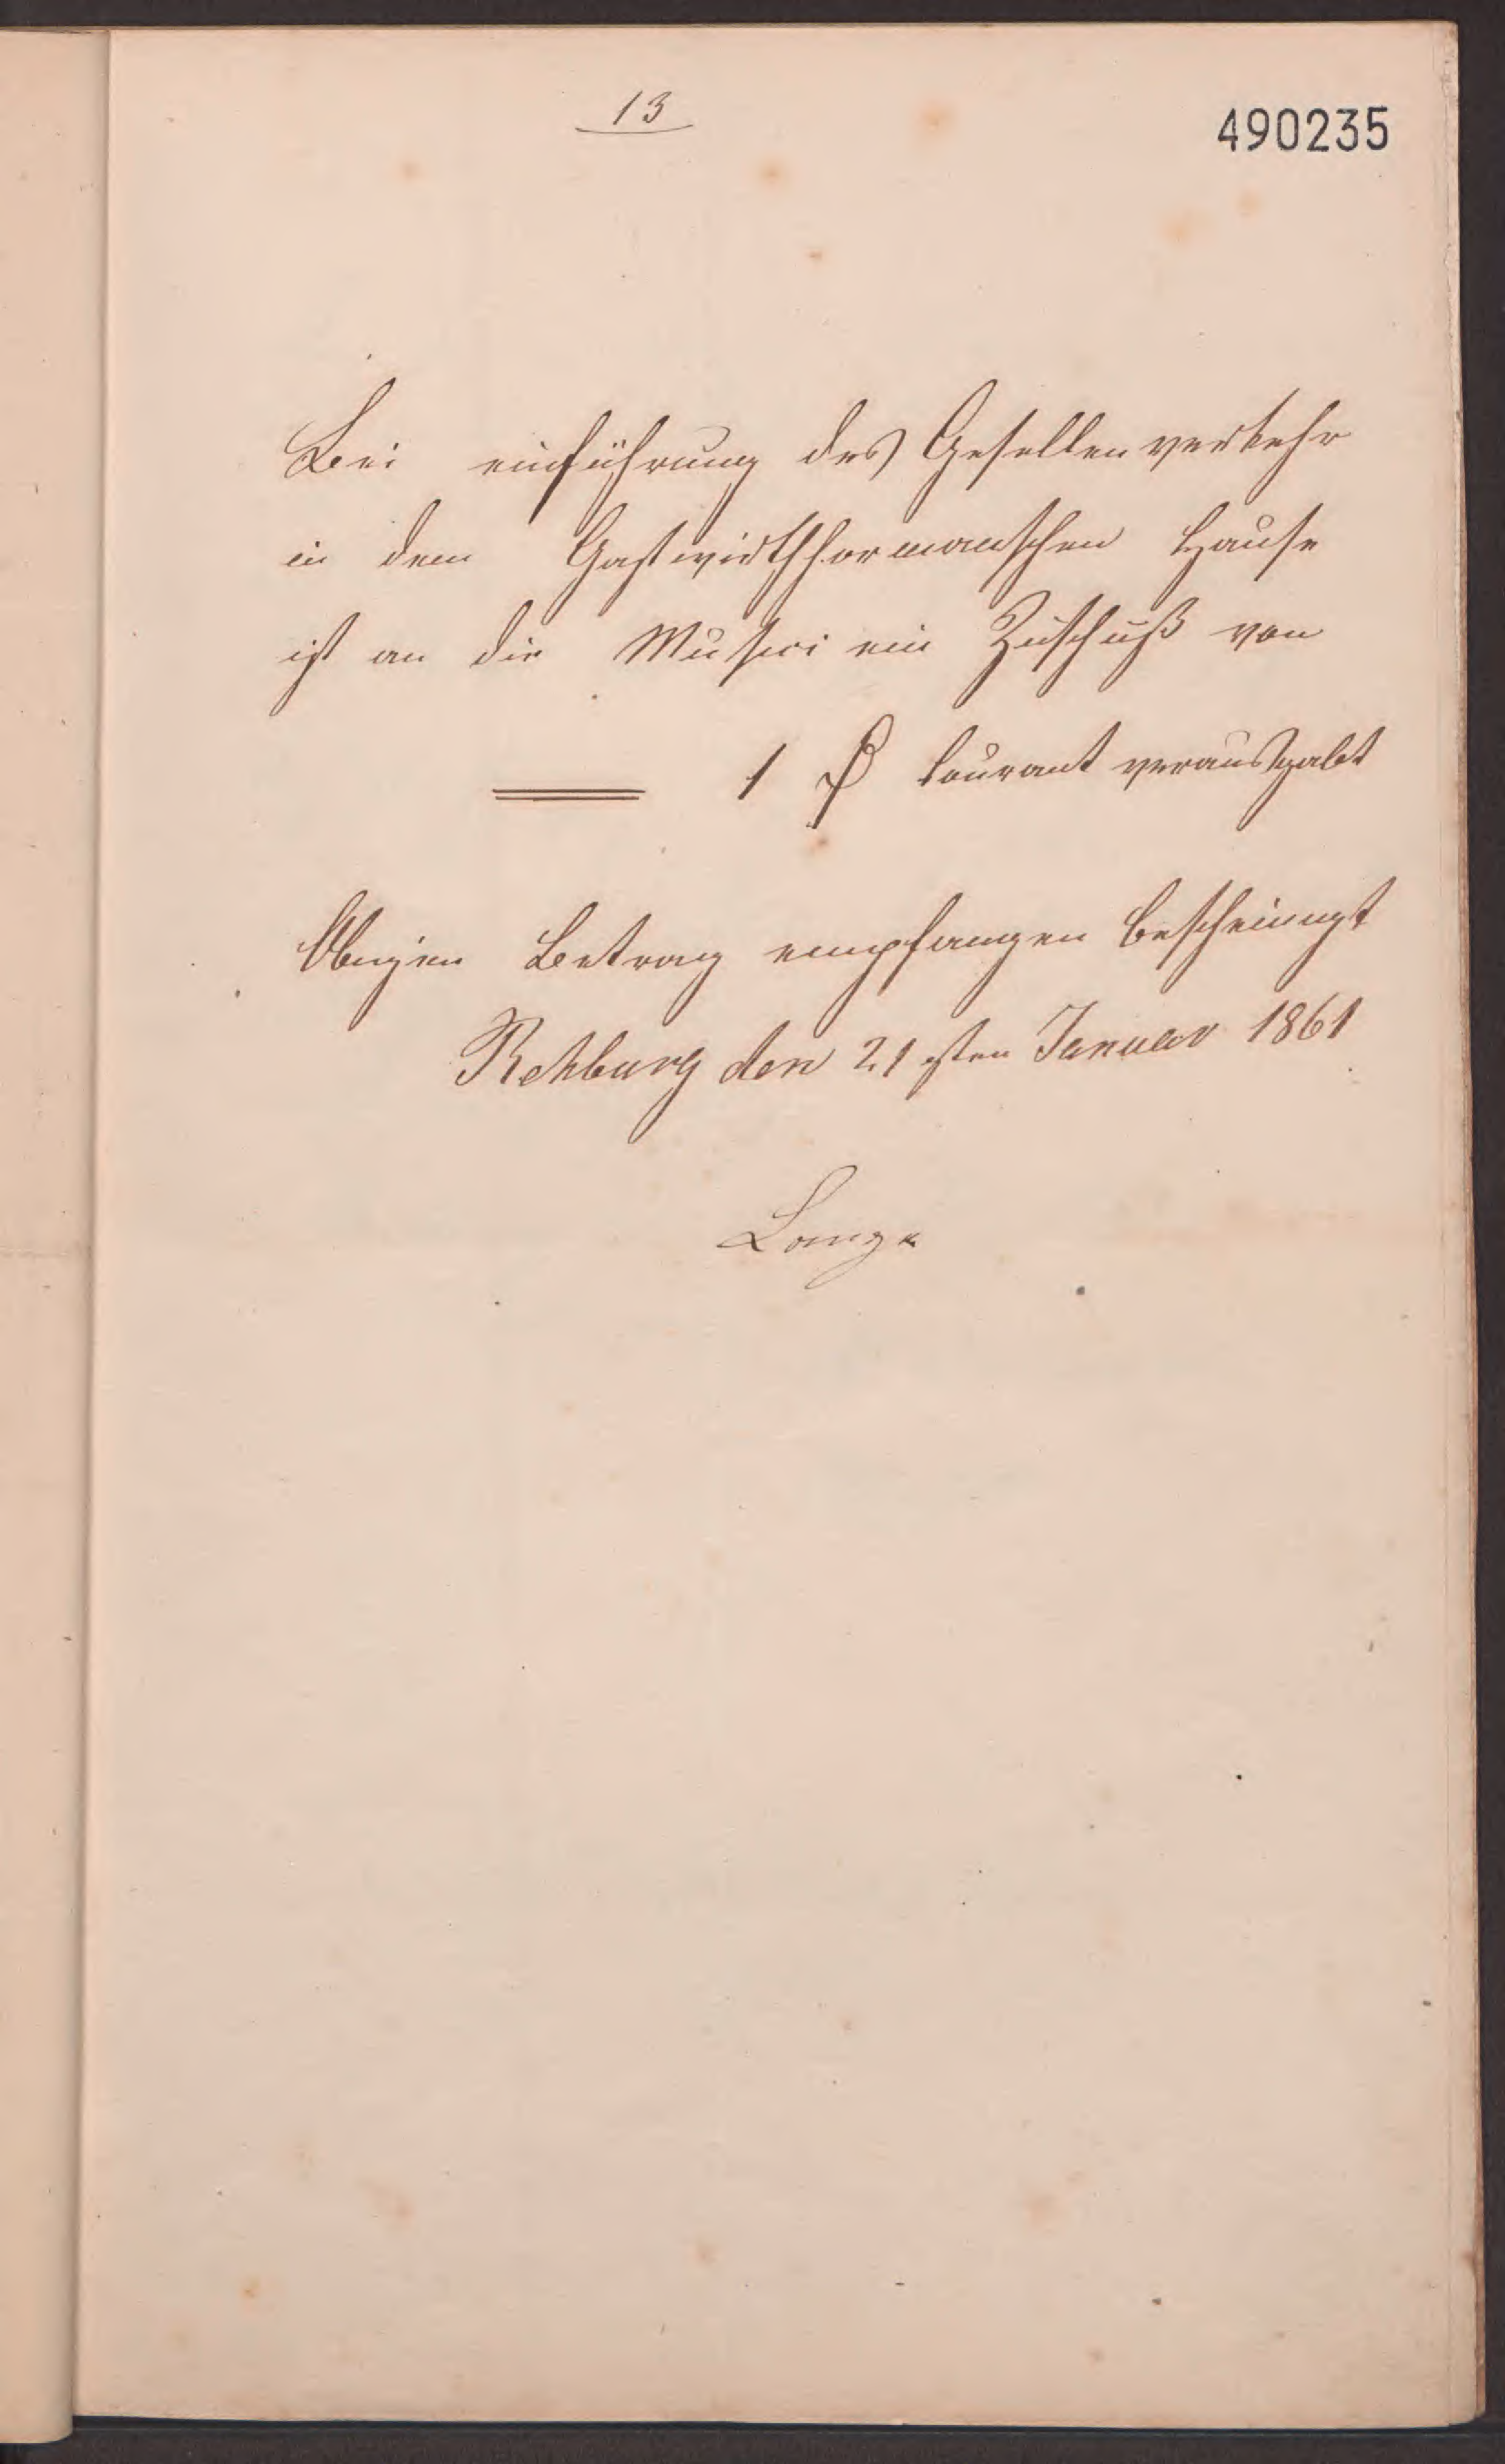 13
490235
Bei einführung des Gesellenverkehr
in dem Gastwirthhormanschen Hause
ist an die Musici ein Zuschuß von
1 ₰ Courant verausgabt
Obigen Betrag empfangen bescheinigt
Rehburg den 21 sten Januar 1861
Lange